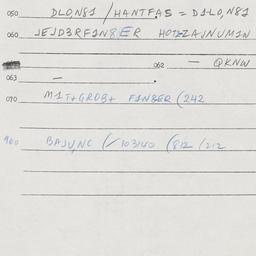 050 DLO,N81 / HANTFAS = D1LO,N81
060 JEJD3RF1N8ER HOTZZAJNUM1N
062 — QKNW
063 —
070 M1T+GRO8+ F1N8ER (242
900 BAJUNC (/ 103140 (812 (212